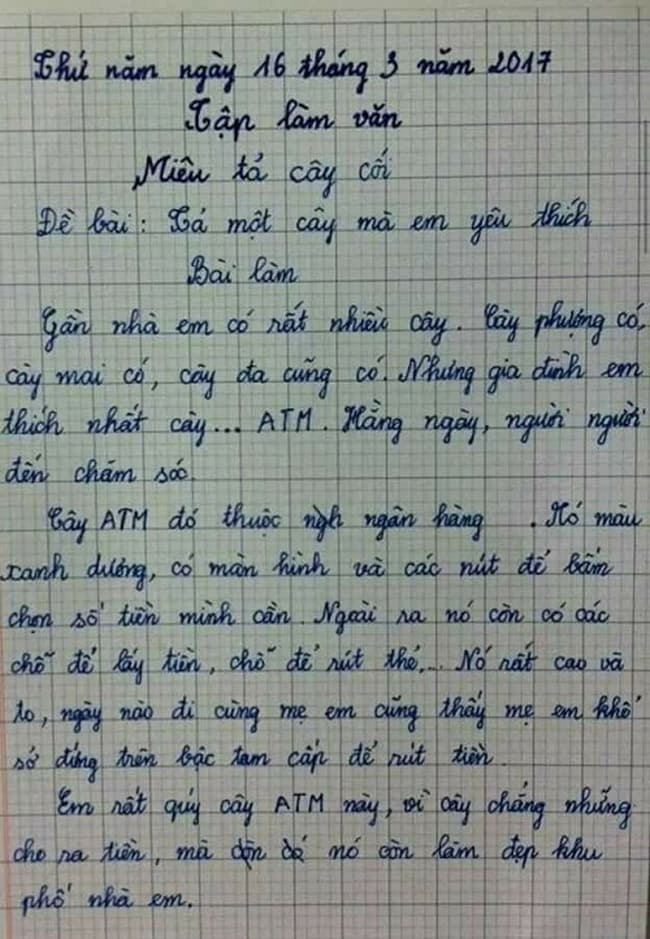 Thứ năm ngày 16 tháng 3 năm 2017
Tập làm văn
Miêu tả cây cối
Đề bài: Tả một cây mà em yêu thích
Bài làm
Gần nhà em có rất nhiều cây. Cây phượng có,
cây mai có, cây đa cũng có. Nhưng gia đình em
thích nhất cây... ATM. Hằng ngày, người người
đến chăm sóc.
Cây ATM đó thuộc ngh ngân hàng . Nó màu
xanh dương, có màn hình và các nút để bấm
chọn số tiền mình cần. Ngoài ra nó còn có các
chỗ để lấy tiền, chỗ để rút thẻ... Nó rất cao và
to, ngày nào đi cùng mẹ em cũng thấy mẹ em khổ
sở đứng trên bậc tam cấp để rút tiền.
Em rất quý cây ATM này, vì cây chẳng những
cho ra tiền, mà nó còn làm đẹp khu
phố nhà em.